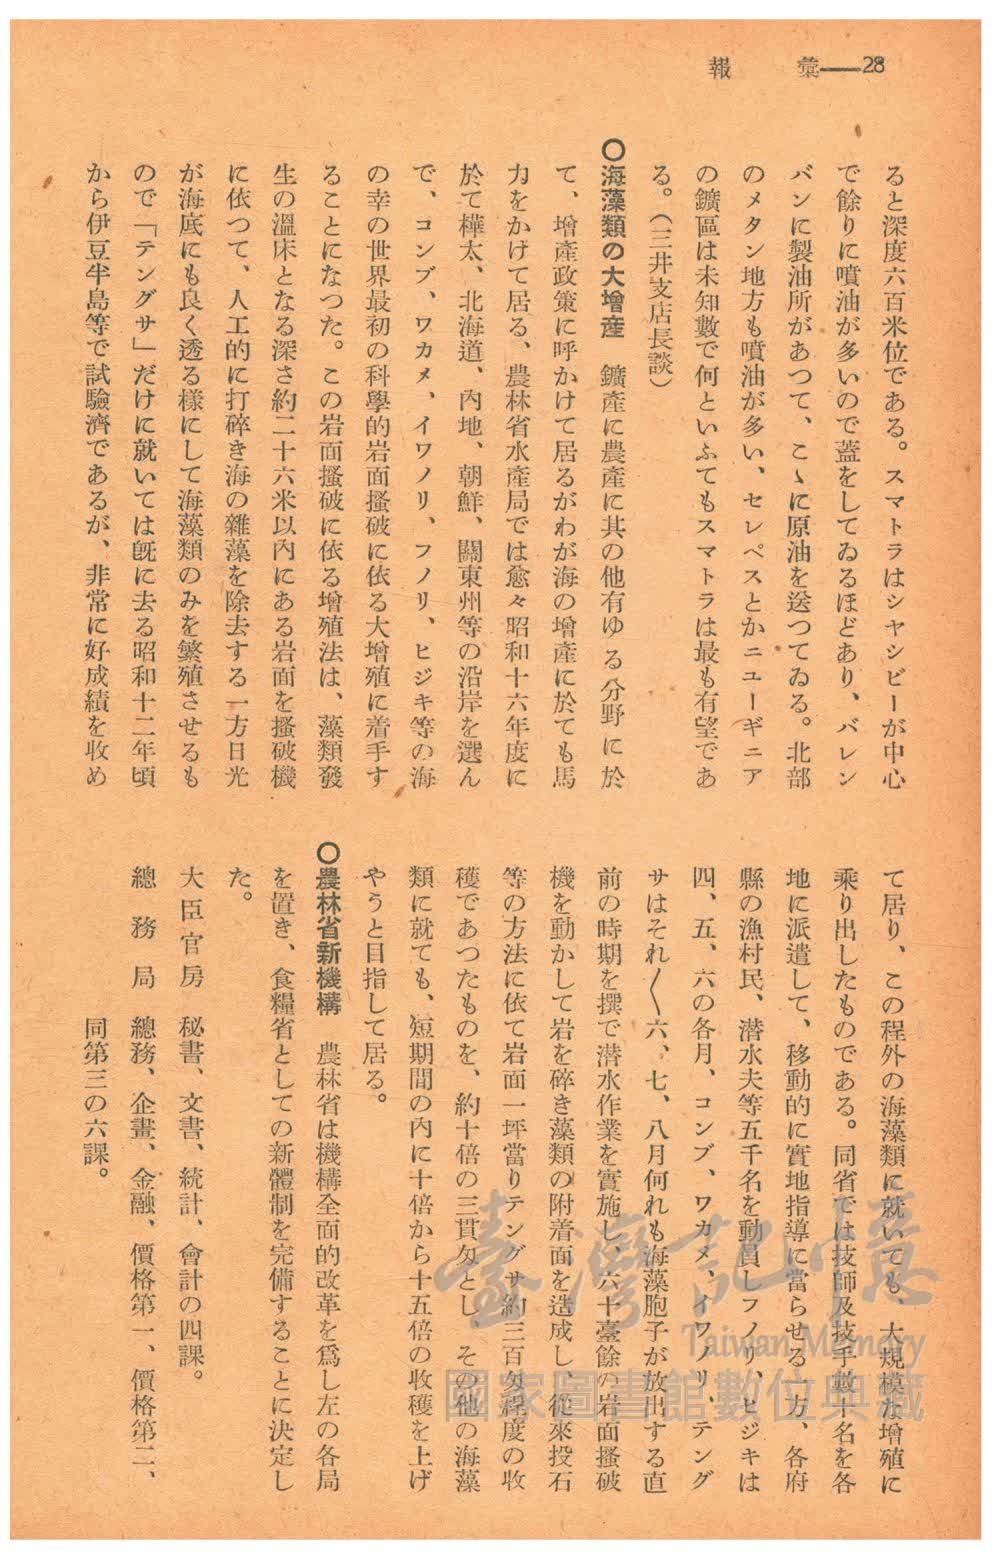 28——彙報
ると深度六百米位である。スマトラはシヤシビーが中心
で餘りに噴油が多いので蓋をしてゐるほどあり、バレン
バンに製油所があつて、こゝに原油を送つてゐる。北部
のメタン地方も噴油が多い、セレベスとかニユーギニア
の鑛區は未知數で何といふてもスマトラは最も有望であ
る。（三井支店長談）
〇海藻類の大增産　鑛產に農產に其の他有ゆる分野に於
て、增產政策に呼かけて居るがわが海の增產に於ても馬
力をかけて居る、農林省水產局では愈々昭和十六年度に
於て樺太、北海道、內地、朝鮮、關東州等の沿岸を選ん
で、コンブ、ワカメ、イワノリ、フノリ、ヒジキ等の海
の幸の世界最初の科學的岩面搔破に依る大增殖に着手す
ることになつた。この岩面搔破に依る增殖法は、藻類發
生の溫床となる深さ約二十六米以內にある岩面を搔破機
に依つて、人工的に打碎き海の雜藻を除去する一方日光
が海底にも良く透る樣にして海藻類のみを繁殖させるも
ので「テングサ」だけに就いては既に去る昭和十二年頃
から伊豆半島等で試驗濟であるが、非常に好成績を收め
て居り、この程外の海藻類に就いても、大規模な增殖に
乘り出したものである。同省では技師及技手數十名を各
地に派遣して、移動的に實地指導に當らせる一方、各府
縣の漁村民、潜水夫等五千名を動員しフノリ、ヒジキは
四、五、六の各月、コンブ、ワカメ、イワノリ、テング
サはそれ〱六、七、八月何れも海藻胞子が放出する直
前の時期を撰で潜水作業を實施し、六十臺餘の岩面搔破
機を動かして岩を碎き藻類の附着面を造成し、從來投石
等の方法に依て岩面一坪當りテングサ約三百匁程度の收
穫であつたものを、約十倍の三貫匁とし、その他の海藻
類に就ても、短期間の內に十倍から十五倍の收穫を上げ
やうと目指して居る。
〇農林省新機構　農林省は機構全面的改革を爲し左の各局
を置き、食糧省としての新體制を完備することに決定し
た。
大臣官房　秘書、文書、統計、會計の四課。
總務局　總務、企畫、金融、價格第一、價格第二、
同第三の六課。
臺灣記憶
Taiwan Memory
國家圖書館數位典藏